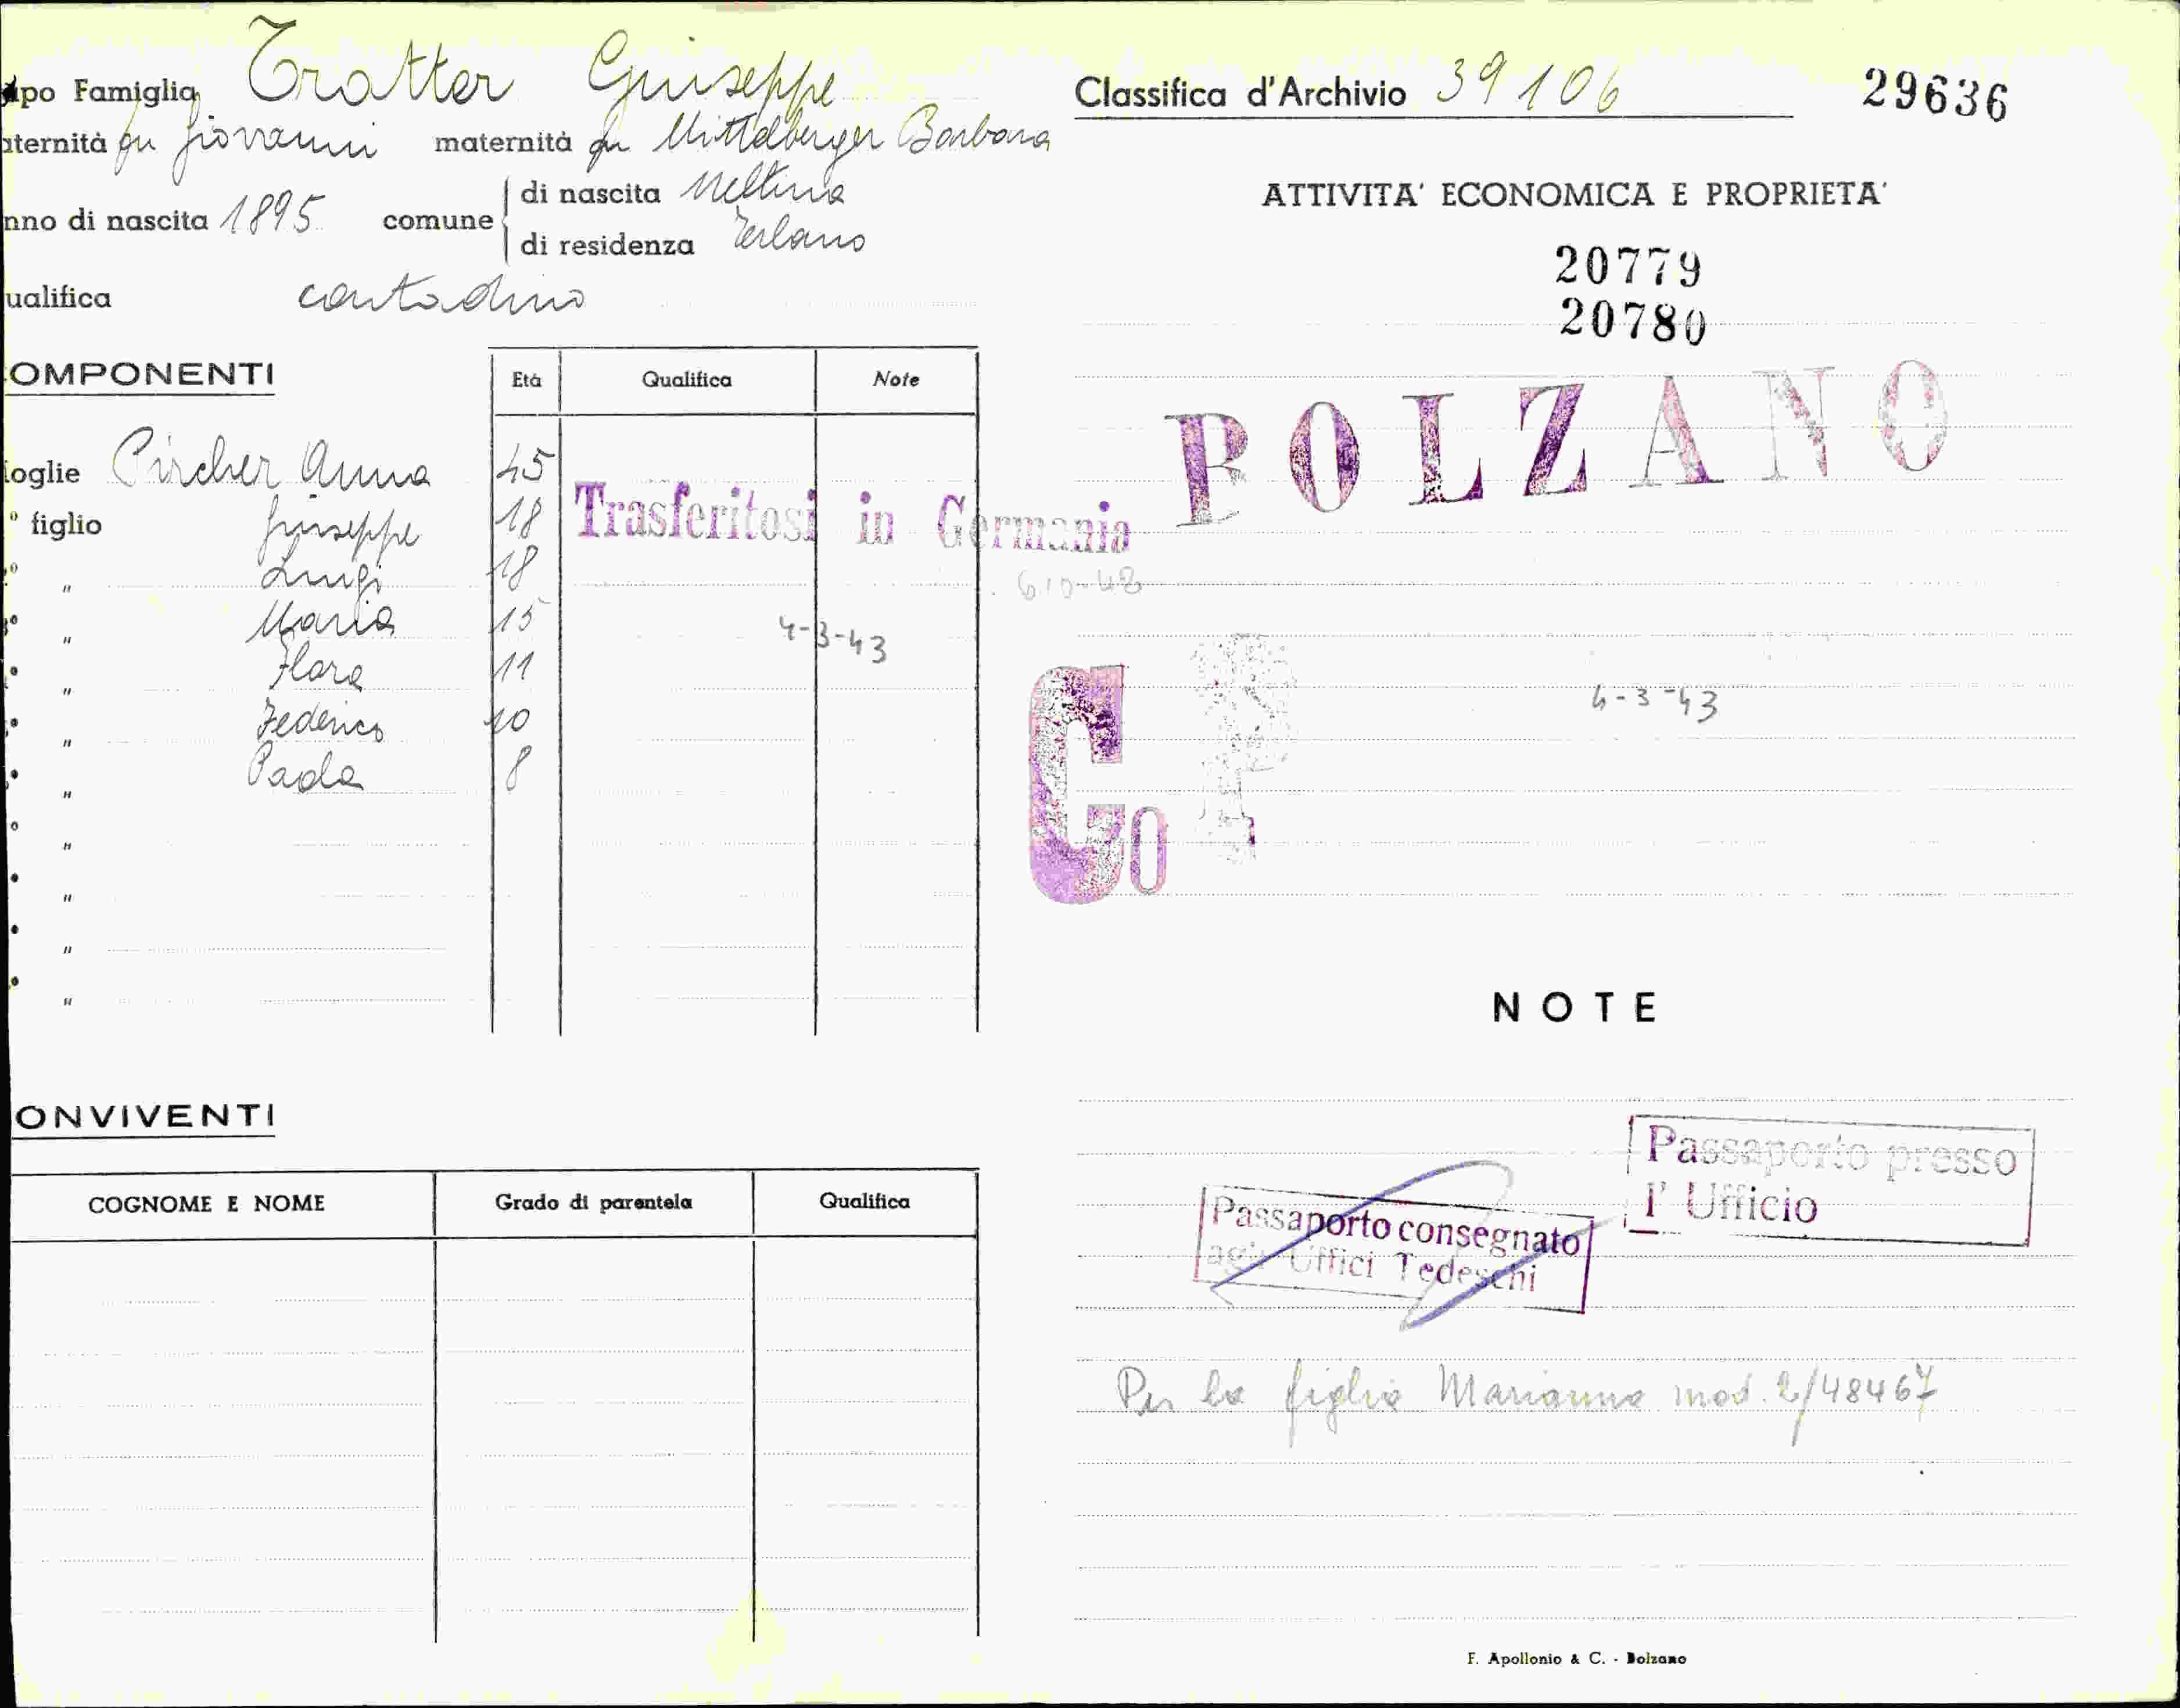 apo Famiglia Tratter Giuseppe
aternità fu Giovanni maternità fu Mittelberger Barbara
nno di nascita 1895 comune di nascita Meltina
di residenza Terlano
ualifica contadino
OMPONENTI Età Qualifica Note
oglie Pircher Anna 45
° figlio Giuseppe 18 Trasferitosi in Germania
° " Luigi 18
6-10-48
° " Maria 15 4-3-43
° " Flora 11
° " Federico 10
° " Paola 8
° "
° "
° "
° "
ONVIVENTI
COGNOME E NOME Grado di parentela Qualifica
Classifica d'Archivio 39106 29636
ATTIVITA' ECONOMICA E PROPRIETA'
20779
20780
BOLZANO
4-3-43
Go
NOTE
Passaporto presso
l' Ufficio
Passaporto consegnato
agli Uffici Tedeschi
Per la figlia Marianna mod. 2/48467
F. Apollonio & C. - Bolzano